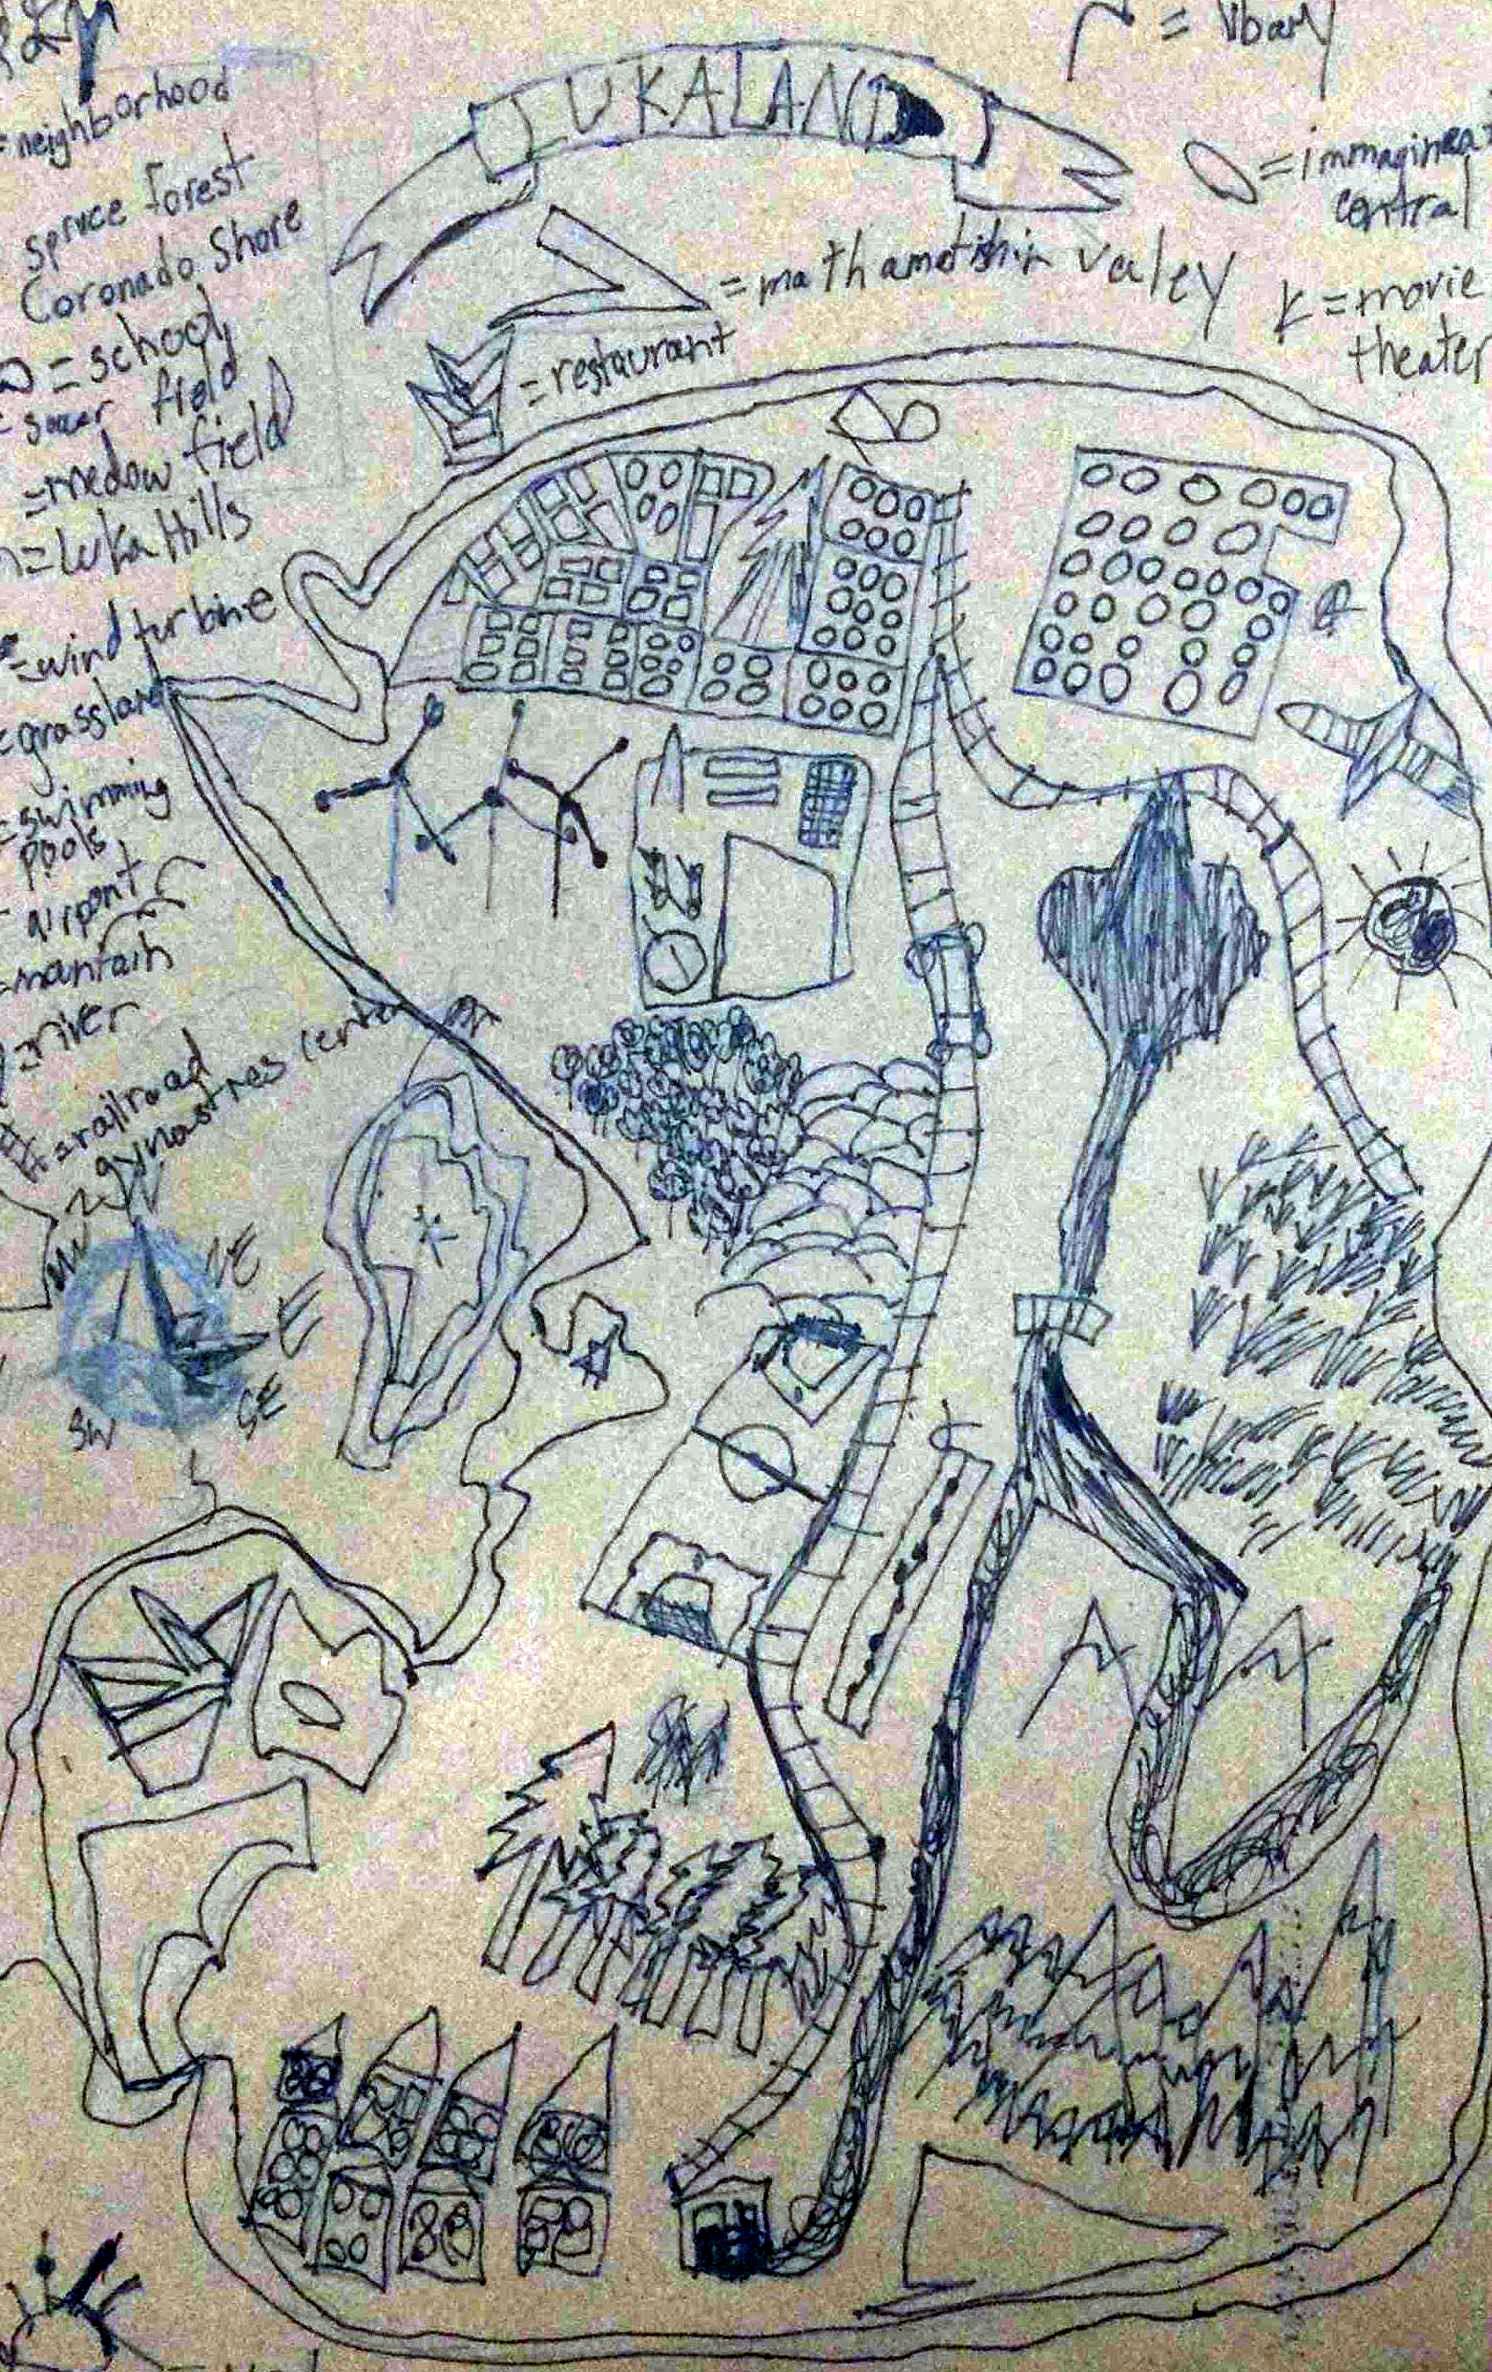 KEY
= neighborhood
spruce forest
Coronado Shore
= school
= soccer field
= medow field
= Luka Hills
= wind turbine
= grassland
= swimming
pools
= airport
= mantain
= river
= railroad
= gynastres center
LUKALAND
= mathamatishin valey
= restaurant
= libary
= immaginea
central
= movie
theater
N
NE
E
SE
SW
W